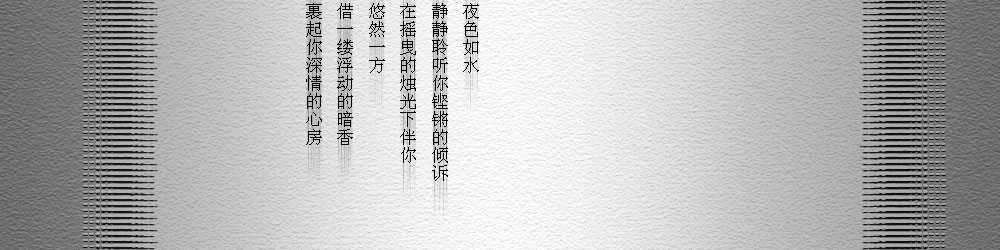 夜色如水
静静聆听你铿锵的倾诉
在摇曳的烛光下伴你
悠然一方
借一缕浮动的暗香
裹起你深情的心房